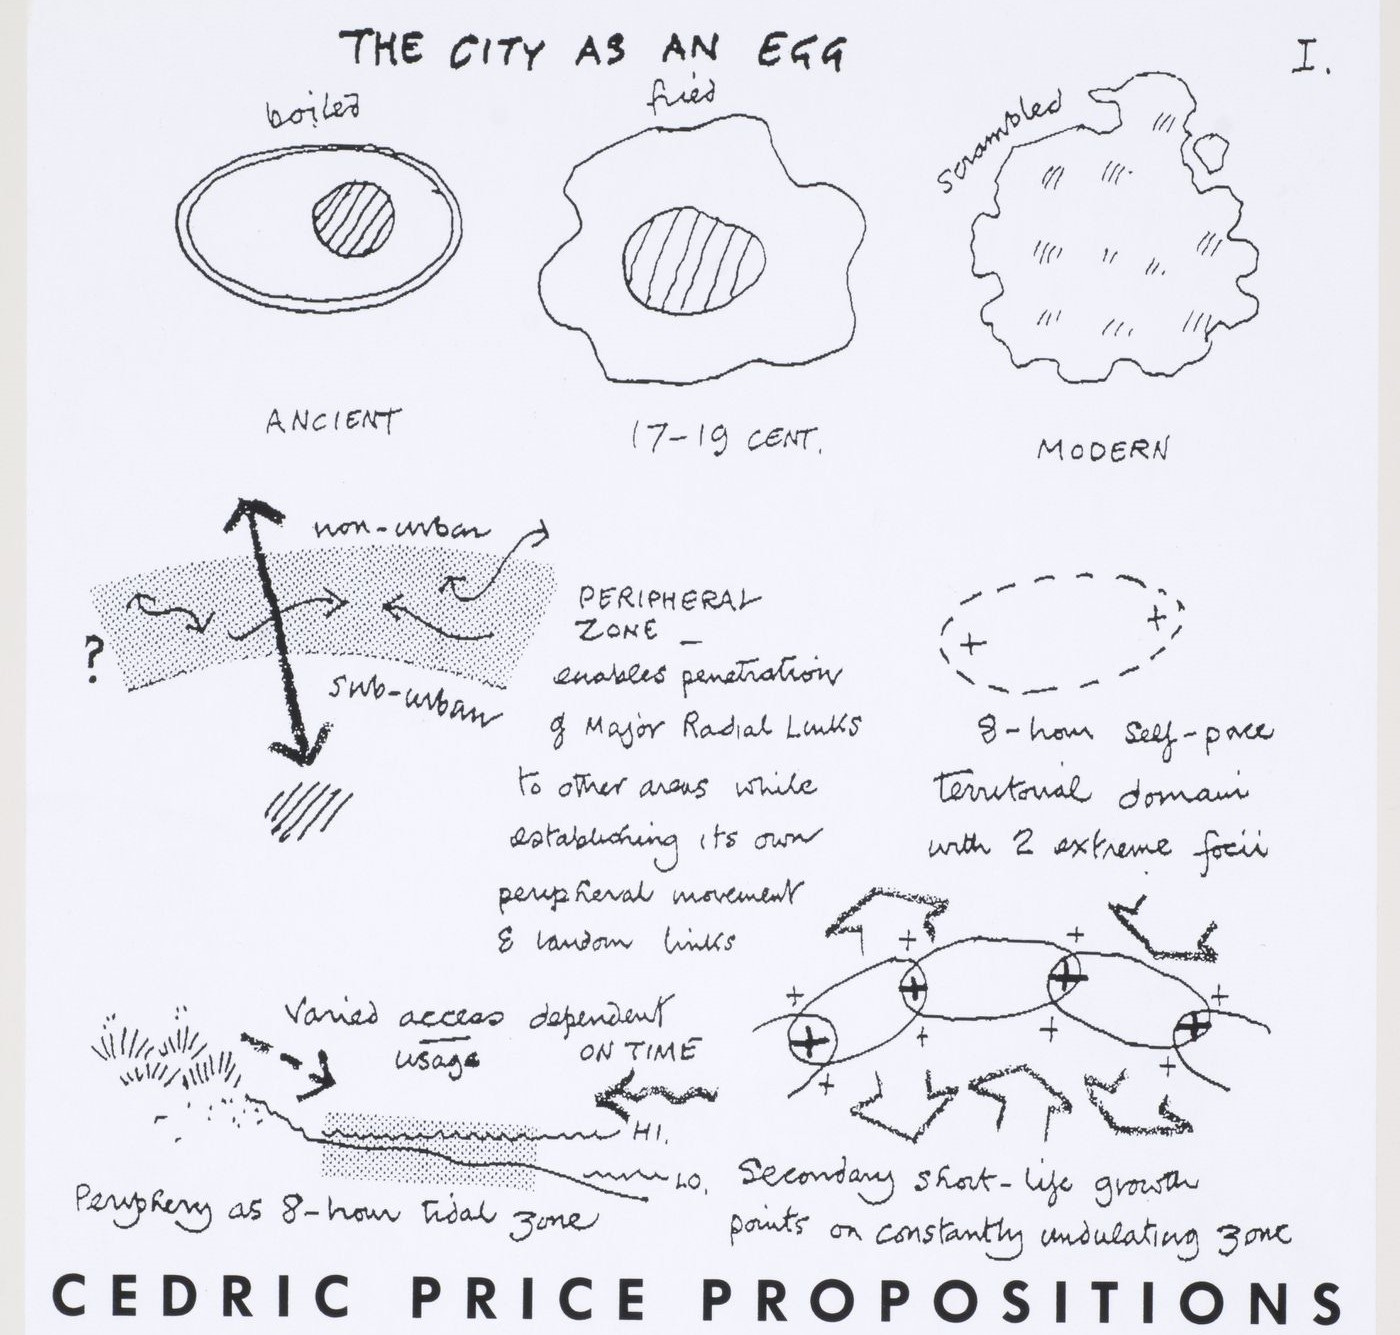 THE CITY AS AN EGG
I.
boiled
fried
scrambled
ANCIENT
17-19 CENT.
MODERN
non-urban
?
sub-urban
PERIPHERAL
ZONE -
enables penetration
of Major Radial Links
to other areas while
establishing its own
peripheral movement
& random links
8-hour self-pace
Territorial domain
with 2 extreme focii
Varied access dependent
usage ON TIME
HI.
LO.
Periphery as 8-hour tidal zone
Secondary short-life growth
points on constantly undulating zone
CEDRIC PRICE PROPOSITIONS